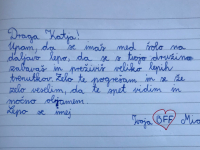 Draga Katja!
Upam, da se maš med šolo na
daljavo lepo, da se s tvojo družino
zabavaš in preživiš veliko lepih
trenutkov. Zelo te pogrešam in se že
zelo veselim, da te spet vidim in
močno objamem.
Lepo se mej
Tvoja BFF